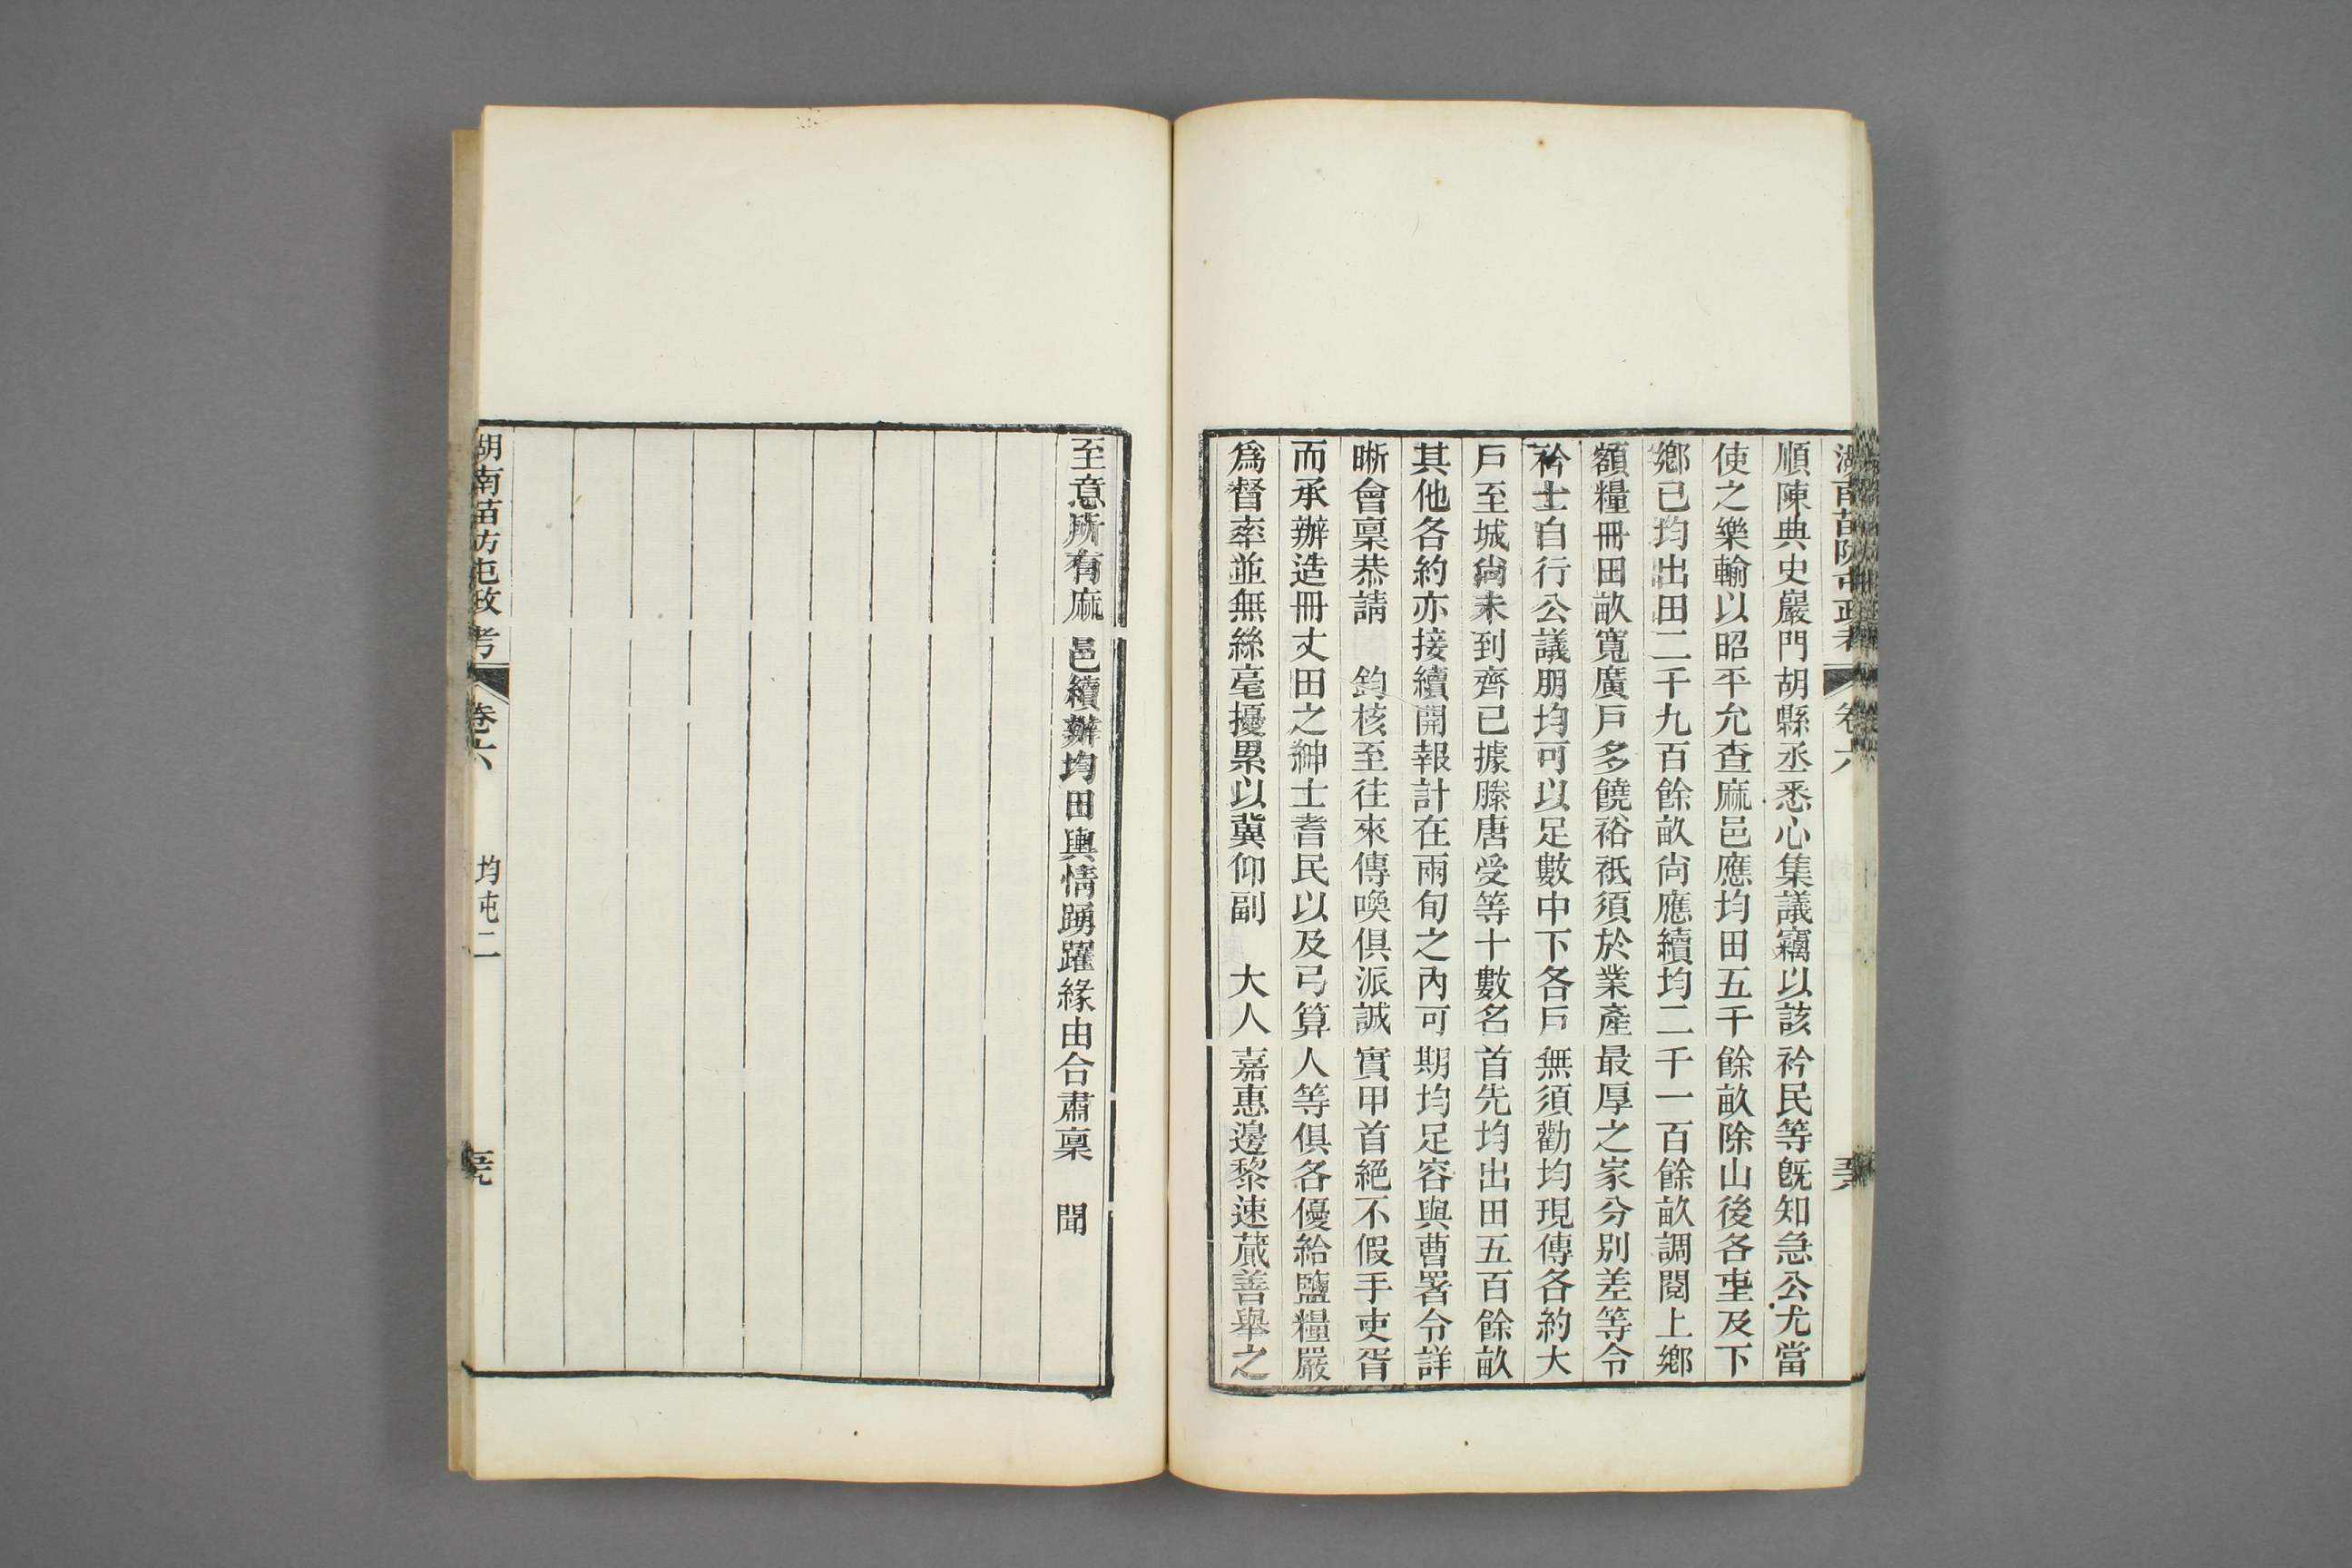 湖南苗防屯政考 卷六
順陳典史巖門胡縣丞悉心集議竊以該衿民等旣知急公尤當
使之樂輸以昭平允查麻邑應均田五千餘畝除山後各𡍼及下
鄉已均出田二千九百餘畝尙應續均二千一百餘畝調閱上鄉
額糧冊田畝寬廣戶多饒裕祗須於業產最厚之家分別差等令
衿士自行公議朋均可以足數中下各戶無須勸均現傳各約大
戶至城尙未到齊已據滕唐受等十數名首先均出田五百餘畝
其他各約亦接續開報計在兩旬之內可期均足容與曹署令詳
晰會稟恭請 鈞核至往來傳喚俱派誠實甲首絕不假手吏胥
而承辦造冊丈田之紳士耆民以及弓算人等俱各優給鹽糧嚴
爲督率並無絲毫擾累以冀仰副 大人嘉惠邊黎速蕆善舉之
至意所有麻邑續辦均田輿情踴躍緣由合肅稟 聞
湖南苗防屯政考 卷六 均屯二